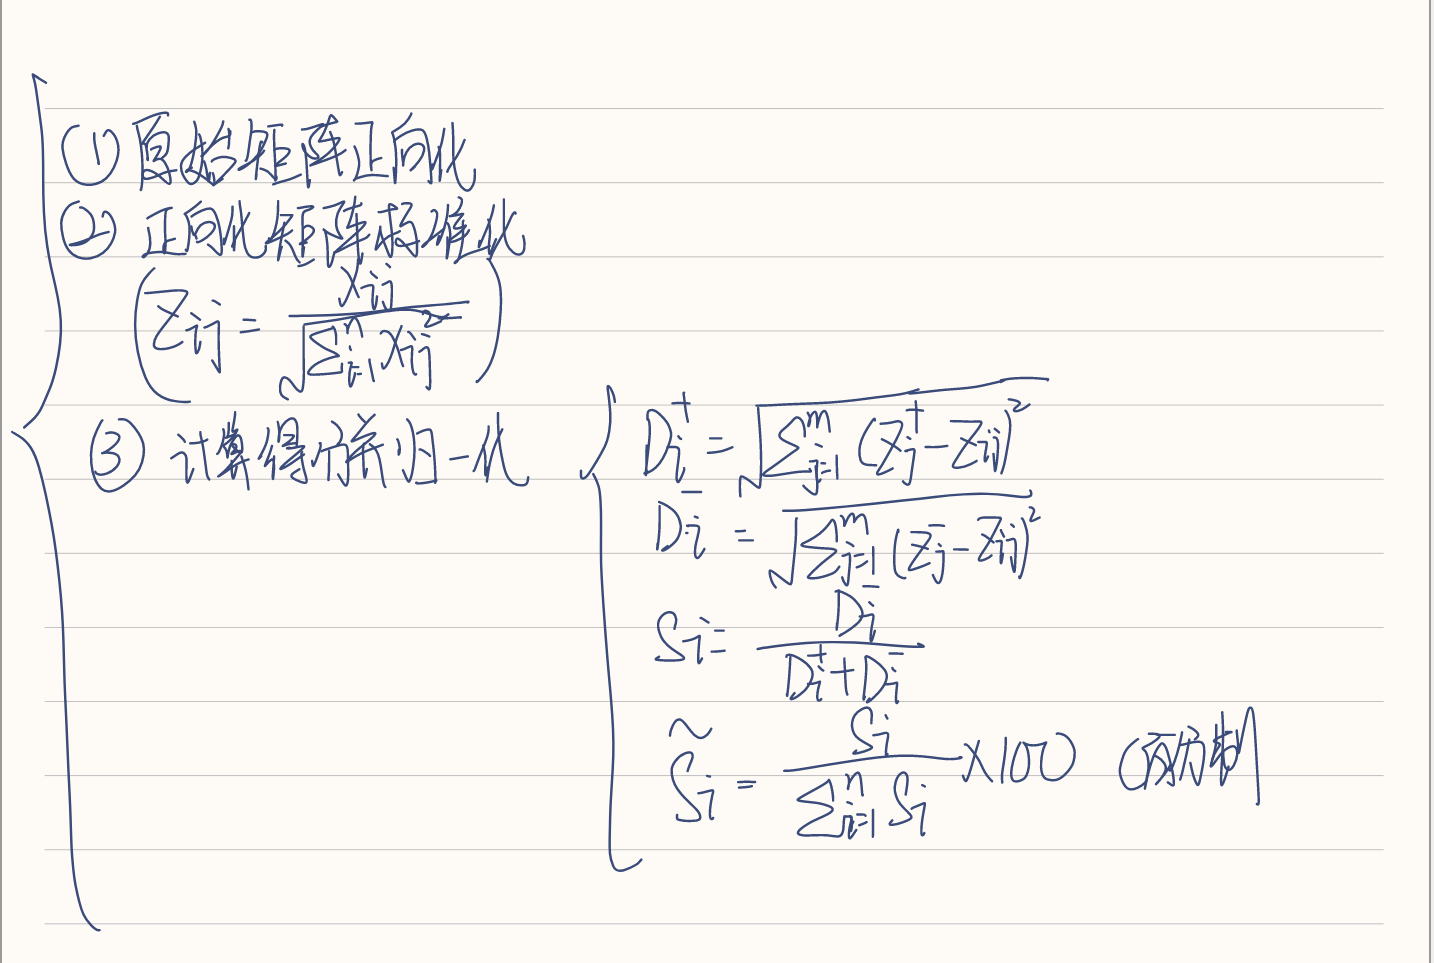 ① 原始矩阵正向化
② 正向化矩阵标准化
(Zij = Xij / √(∑ⁿᵢ₌₁ Xij²))
③ 计算得分并归一化
Dᵢ⁺ = √(∑ᵐⱼ₌₁ (Zⱼ⁺ - Zij)²)
Dᵢ⁻ = √(∑ᵐⱼ₌₁ (Zⱼ⁻ - Zij)²)
Sᵢ = Dᵢ⁻ / (Dᵢ⁺ + Dᵢ⁻)
S̃ᵢ = Sᵢ / (∑ⁿᵢ₌₁ Sᵢ) ×100 (百分制